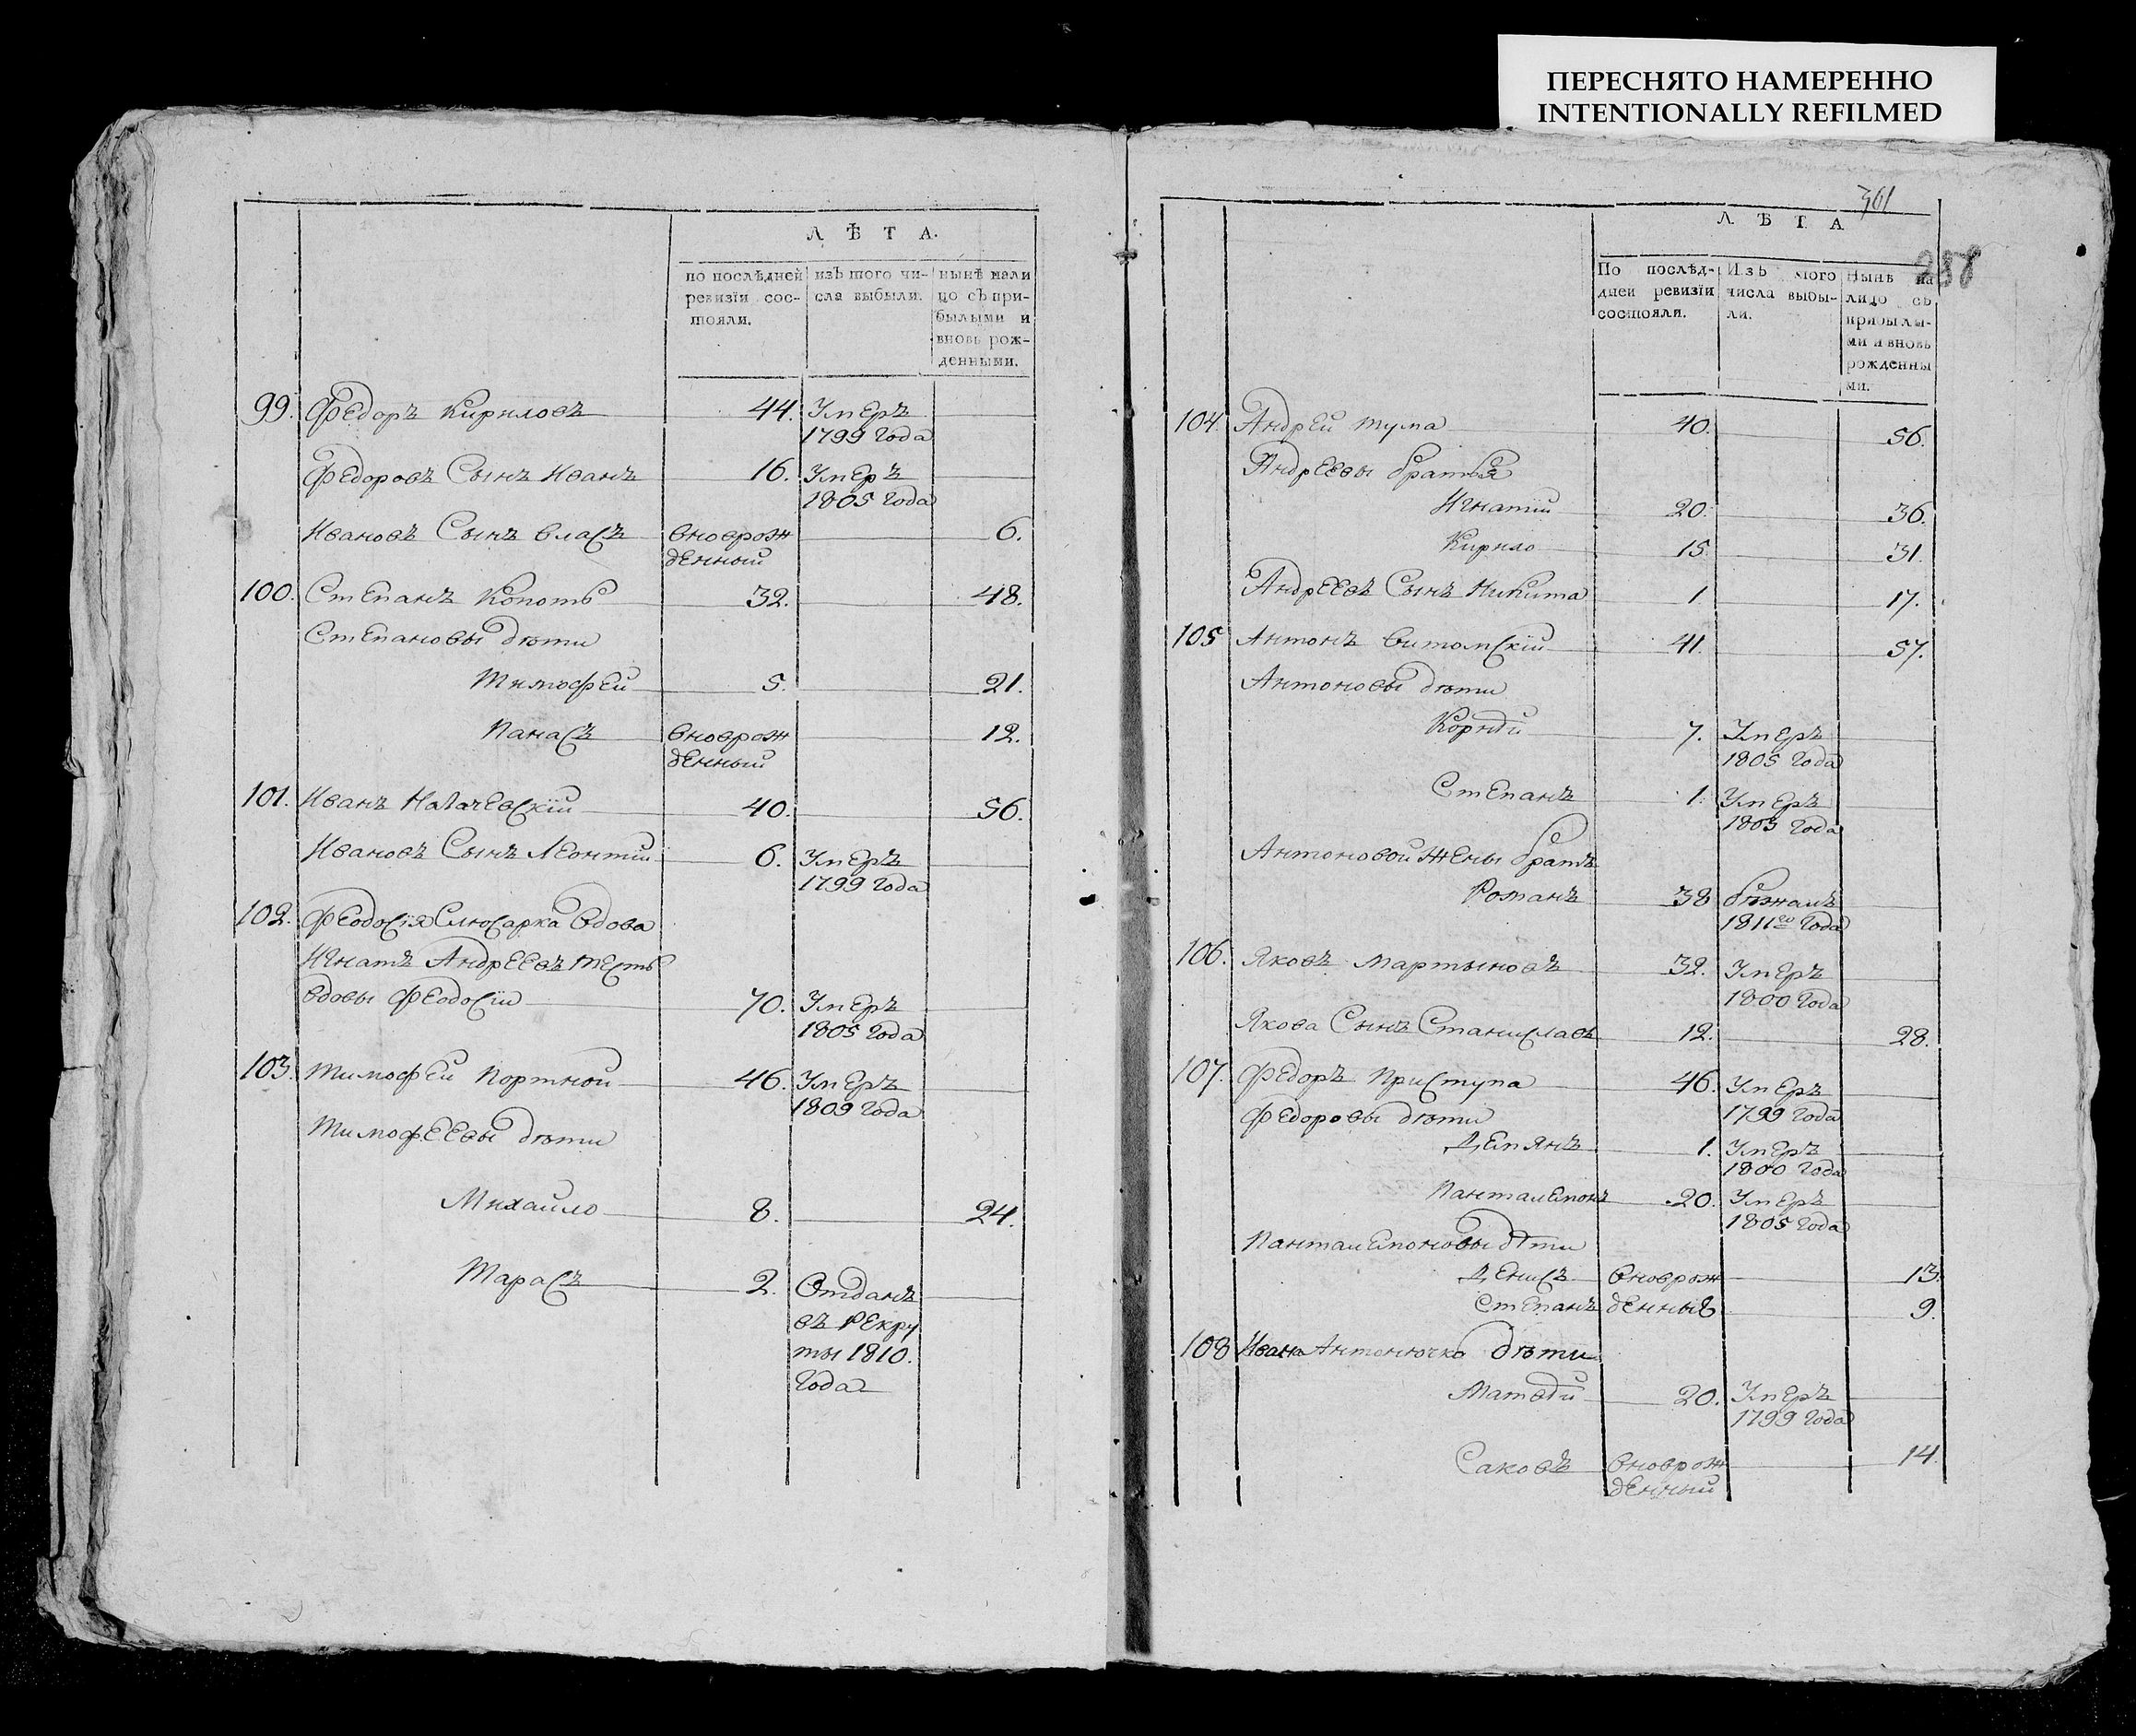 ПЕРЕСНЯТО НАМЕРЕННО
INTENTIONALLY REFILMED
Л Ѣ Т А.
по послѣдней ревизїи состояли.
изъ того числа выбыли.
нынѣ нали цо съ прибылыми и вновь рожденными.
99. Федоръ Кириловъ 44. Умеръ
1799 года
Федоровъ Сынъ Иванъ 16. Умеръ
1805 года
Ивановъ Сынъ Власъ вноврож 6.
денный
100. Степанъ Копоть 32. 48.
Степановы дѣти
Тимофей 5. 21.
Панасъ вноврож 12.
денный
101. Иванъ 40. 56.
Ивановъ Сынъ Леонтій 6. Умеръ
1799 года
102. Феодосія Слюсарка вдова
Игнатъ Андреевъ тесть
вдовы Феодосіи 70. Умеръ
1805 года
103. Тимофей Портной 46. Умеръ
1809 года
Тимофеевы дѣти
Михайло 8. 24.
Тарасъ 2. Отданъ
въ рекру
ты 1810.
года
361
258
Л Ѣ Т А
По послѣдней ревизїи состояли.
Изъ того числа выбыли.
Нынѣ на лицо съ прибылыми и вновь рожденными.
104. Андрей Тума 40. 56.
Андреевы братья
Игнатій 20. 36.
Кирило 15. 31.
Андреевъ Сынъ Никита 1 17.
105 Антонъ Витомскій 41. 57.
Антоновы дѣти
Корнѣй 7. Умеръ
1805 года
Степанъ 1. Умеръ
1805 года
Антоновой жены братъ
Романъ 38 бѣжалъ
1811го года
106. Яковъ Мартыновъ 32. Умеръ
1800 года
Якова Сынъ Станиславъ 12. 28.
107. Федоръ Приступа 46. Умеръ
Федоровы дѣти 1799 года
Демянъ 1. Умеръ
1800 года
Панталемонъ 20. Умеръ
1805 года
Панталемоновы дѣти
Денисъ вноврож 13.
Степанъ денныѣ 9.
108 Ивана Антонючка дѣти
Матвѣй 20. Умеръ
1799 года
Саковъ вноврож 14.
денный